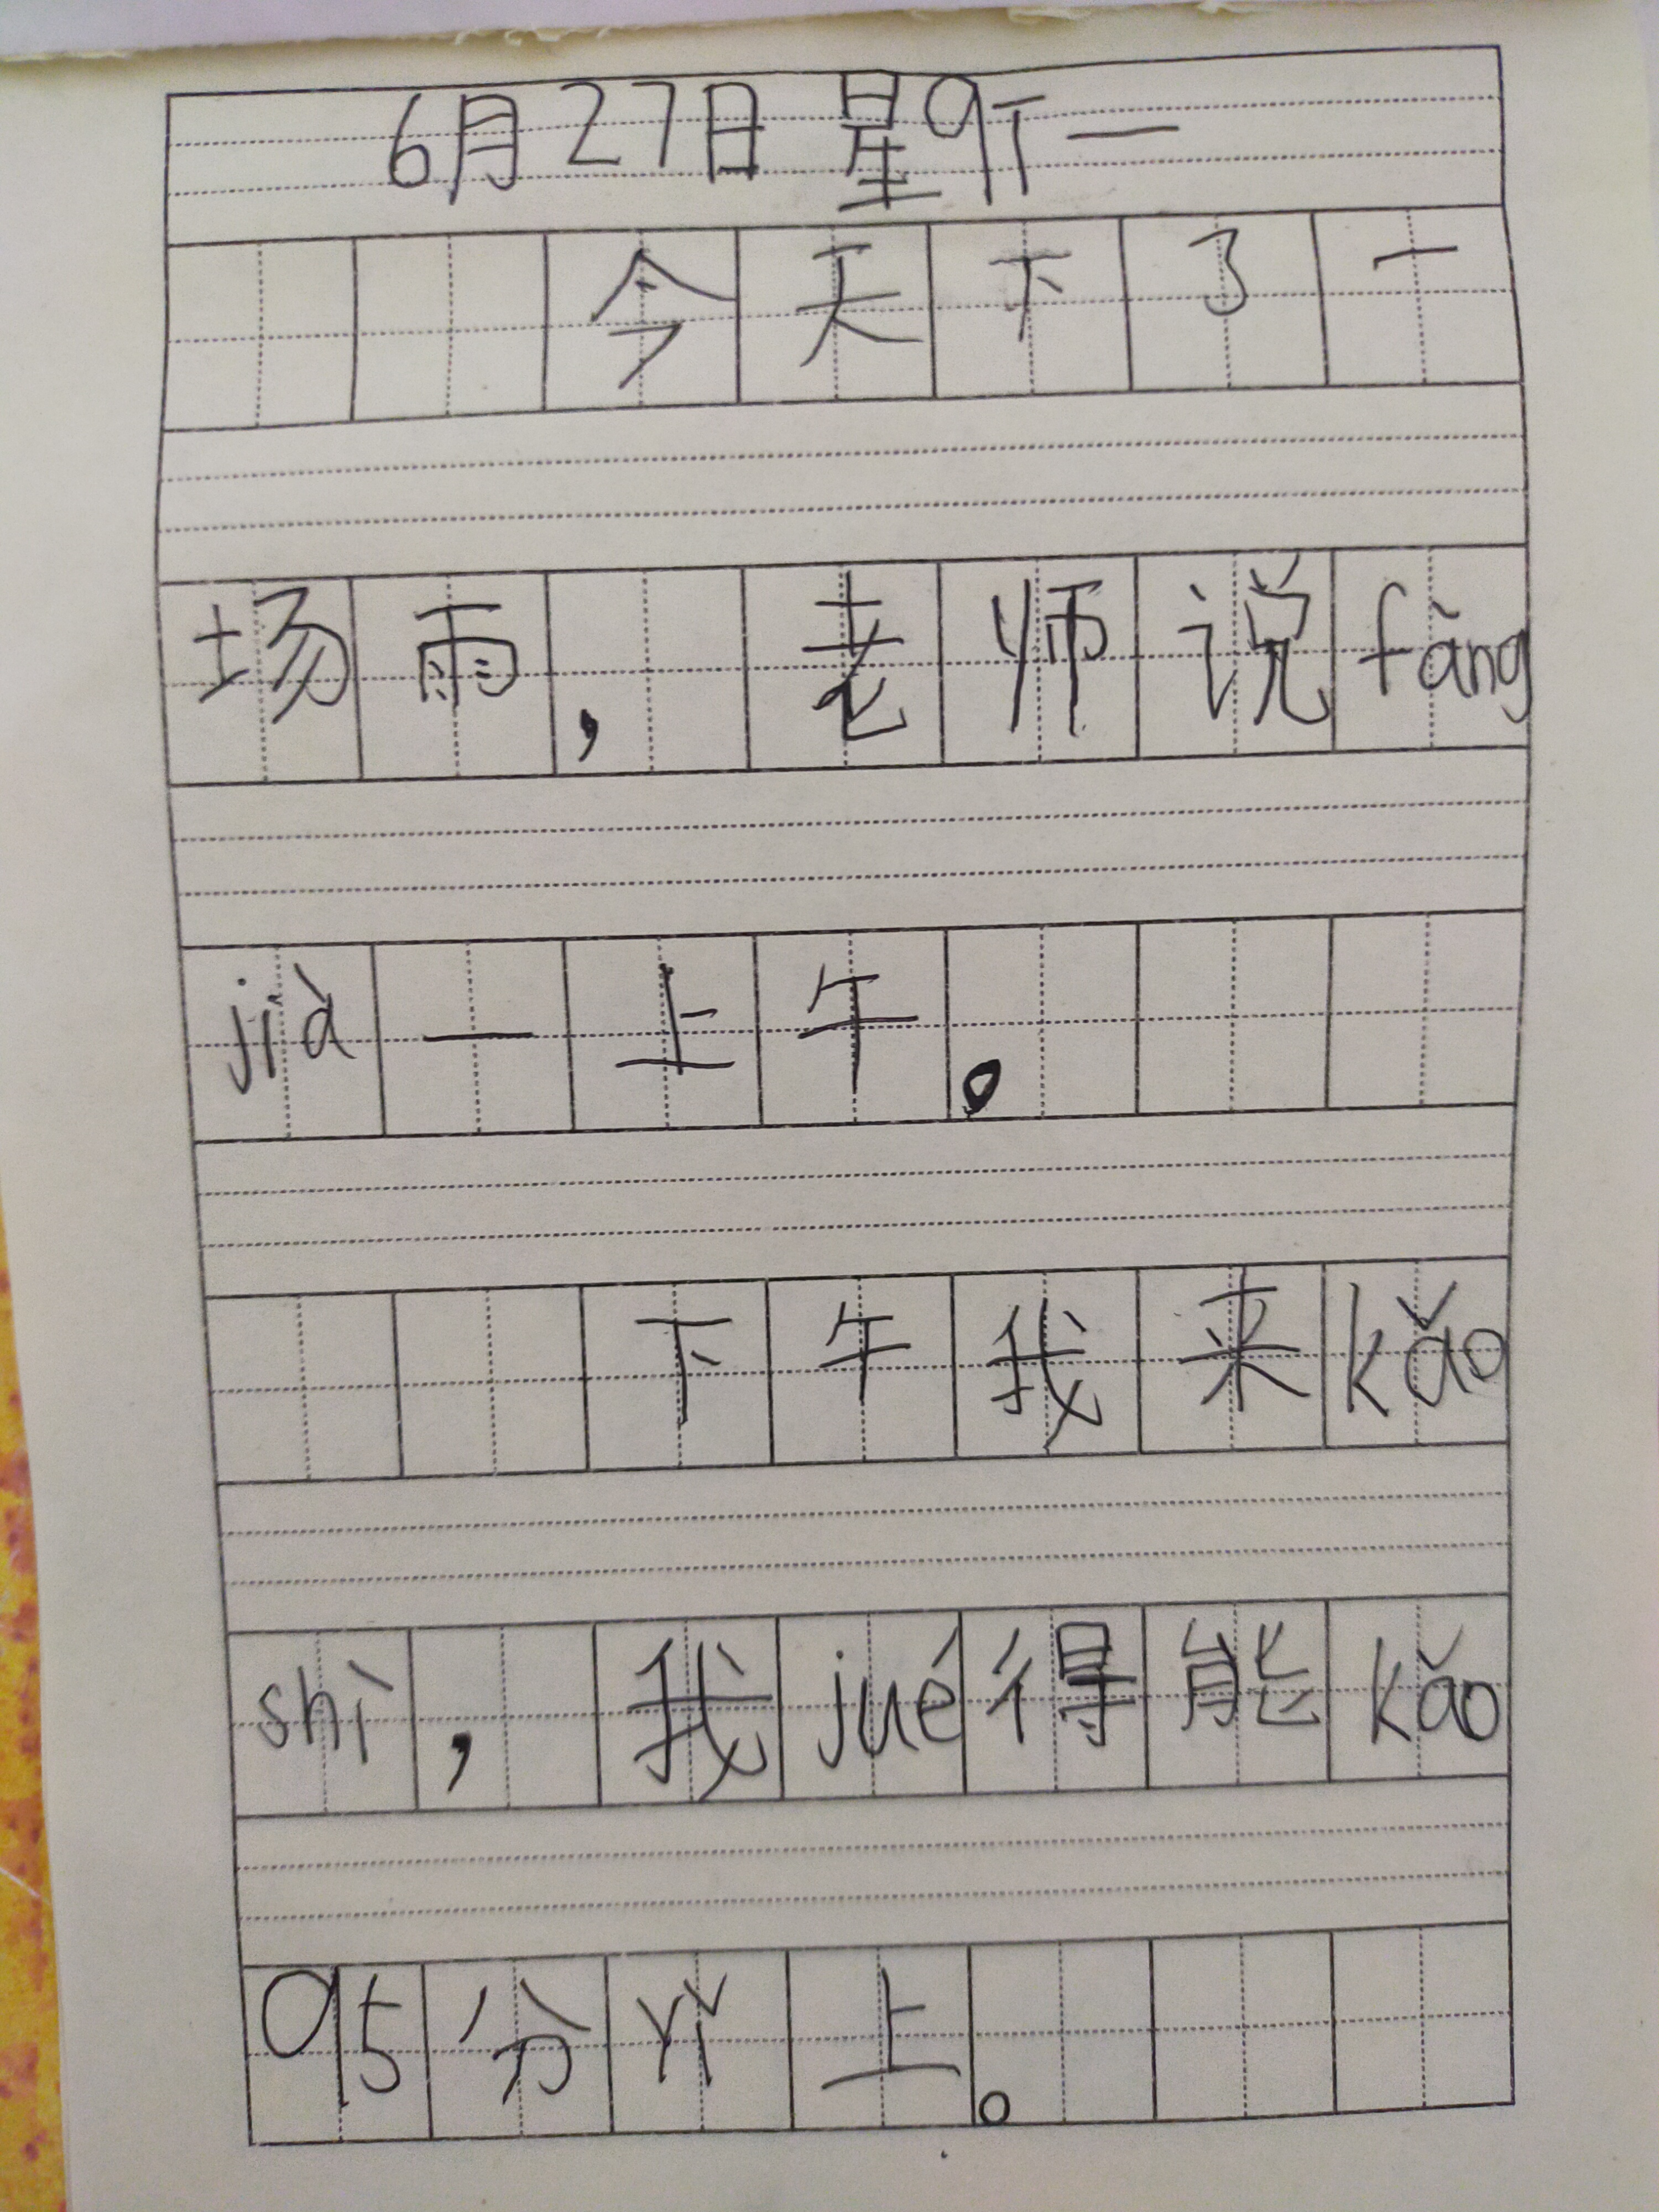 6月27日 星qī一
今天下了一
场雨,老师说fàng
jià一上午。
下午我来kǎo
shì,我jué得能kǎo
95分yǐ上。